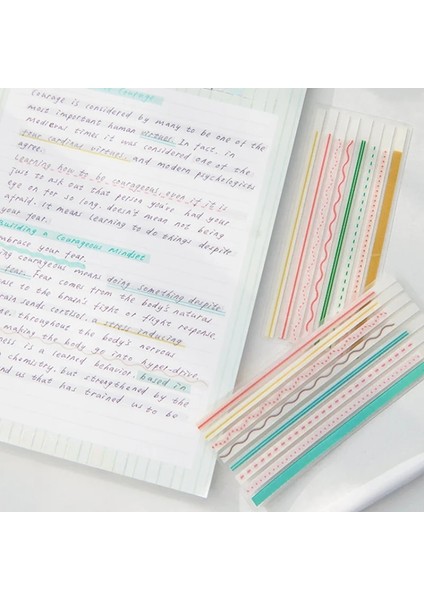 Courage
Courage is considered by many to be one of the
most important human virtues. In fact, in
medieval times it was considered one of the
four cardinal virtues, and modern psychologists
agree.
Learning how to be courageous, even if it is
just to ask out that person you've had your
eye on for so long. doesn't mean not being
afraid. it means learning to do things despite
your fear.
Building a Courageous Mindset
mbrace your fear.
ing courageous means doing something despite
fear. Fear comes from the body's natural
to the brain's fight or flight response.
brain sends cortisol, a stress inducing
throughout the body's nervous
making the body go into hyper-drive.
ness is a learned behavior, based in
chemistry, but strengthened by the
nd us that has trained us to be